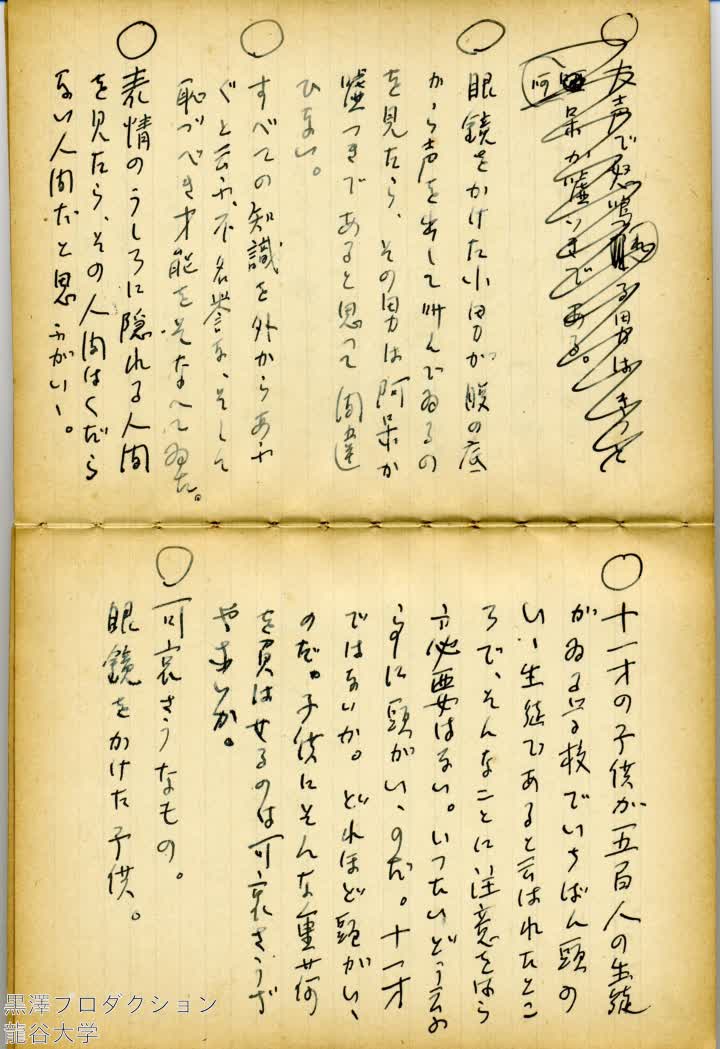 ○大声で怒鳴る男はきっと
阿呆か嘘つきである。
○眼鏡をかけた小男が腹の底
から声を出して叫んでゐるの
を見たら、その男は阿呆か
嘘つきであると思って間違
ひない。
○すべての知識を外からあふ
ぐと云ふ、不名誉な、そして
恥づべき才能をそなへてゐた。
○表情のうしろに隠れる人間
を見たら、その人間はくだら
ない人間だと思ふがいゝ。
○十一才の子供が一五百人の生徒
がゐる学校でいちばん頭の
いゝ生徒であると云はれたとこ
ろで、そんなことに注意をはら
ふ必要はない。いつたいどう云ふ
に頭がいゝのだ。十一才
ではないか。どれほど頭がいゝ
のだ。子供にそんな重荷
を負はせるのは可哀さうぢ
やないか。
○可哀さうなもの。
眼鏡をかけた子供。
黒澤プロダクション
龍谷大学